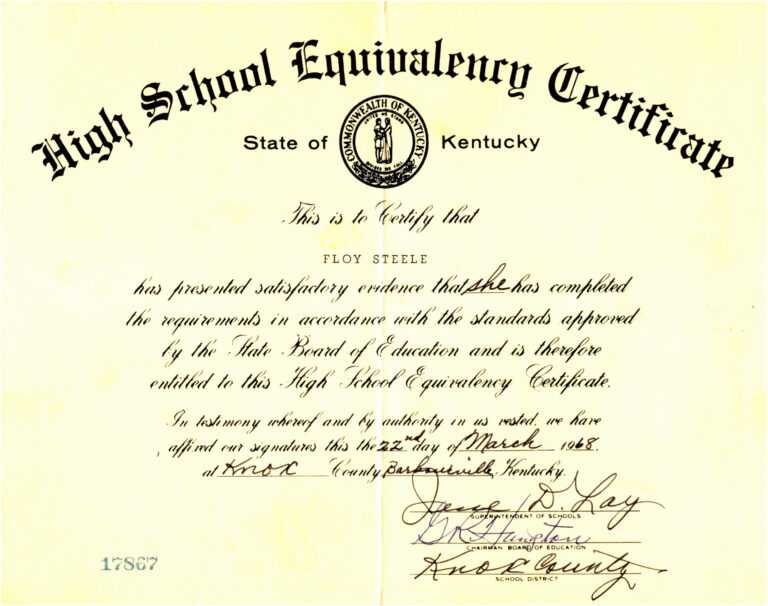 High School Equivalency Certificate
State of Kentucky
COMMONWEALTH OF KENTUCKY
This is to Certify that
FLOY STEELE
has presented satisfactory evidence that she has completed
the requirements in accordance with the standards approved
by the State Board of Education and is therefore
entitled to this High School Equivalency Certificate.
In testimony whereof and by authority in us vested, we have
affixed our signatures this the 22nd day of March 1968.
at Knox County Barbourville, Kentucky.
Jesse D. Lay
SUPERINTENDENT OF SCHOOLS
CHAIRMAN BOARD OF EDUCATION
Knox County
SCHOOL DISTRICT
17867